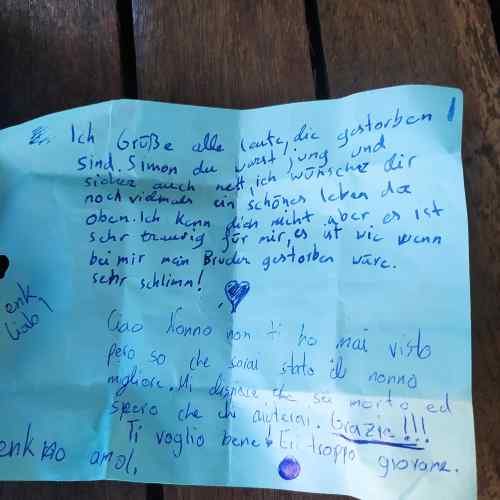 Ich Grüße alle Leute, die gestorben
sind. Simon du warst jung und
sicher auch nett, ich wünsche dir
noch vielmals ein schönes leben da
oben. Ich kenn dich nicht aber es ist
sehr traurig für mir, es ist wie wenn
bei mir mein Bruder gestorben wäre.
sehr schlimm!
enk
liab,
Ciao Nonno non ti ho mai visto
però so che sarai stato il nonno
migliore. Mi dispiace che sei morto ed
spero che mi aiuterai. Grazie!!!
Ti voglio bene! troppo giovane.
enk amol,